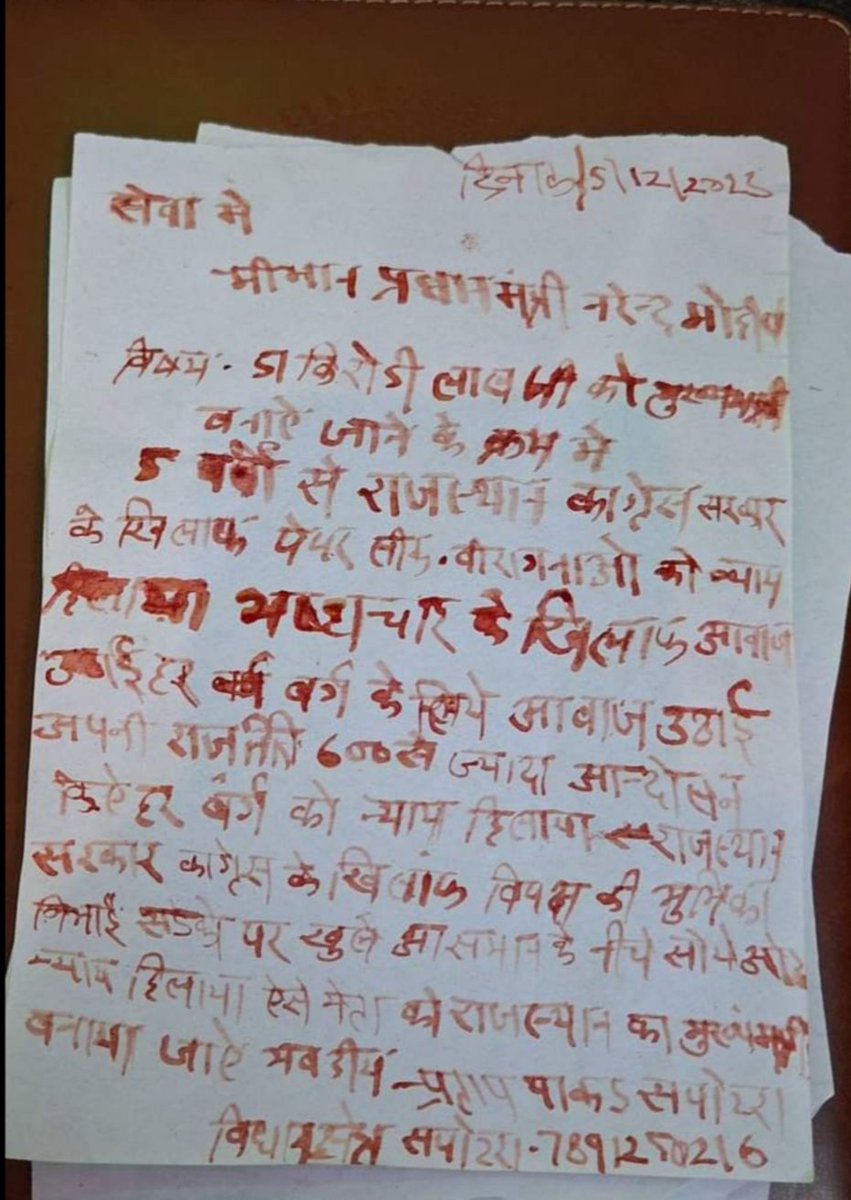 दिनाक/5/12/2023
सेवा मे
श्रीमान प्रधानमंत्री नरेन्द्र मोदीजी
विषय. डा किरोडी लाल जी को मुख्यमंत्री
बनाऐ जाने के क्रम मे
5 वर्षो से राजस्थान काग्रेस सरकार
के खिलाफ पेपर लीक. वीरागनाओ को न्याय
दिलाया भ्रष्टाचार के खिलाफ आवाज
उठाई हर वर्ग के लिये आवाज उठाई
अपनी राजनीति 600 से ज्यादा आन्दोलन
किऐ हर वर्ग को न्याय दिलाया राजस्थान
सरकार काग्रेस के खिलाफ विपक्ष की भुमिका
निभाई सडको पर खुले आसमान के नीचे सोये और
न्याय दिलाया ऐसे नेता को राजस्थान का मुख्यमंत्री
बनाया जाऐ भवदीय सपोटरा
विधानसभा क्षेत्र सपोटरा.